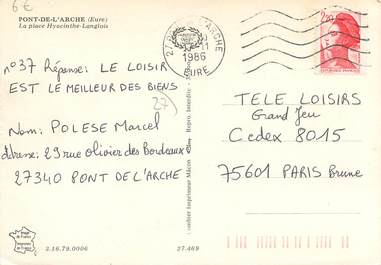 6€
PONT-DE-L'ARCHE (Eure)
La place Hyacinthe-Langlois
L'ARCHE
11
1986
EURE
2,20
n°37 Réponse: LE LOISIR
EST LE MEILLEUR DES BIENS
27
Nom: POLESE Marcel
Adresse: 29 rue olivier des Bordeaux
27340 PONT DE L'ARCHE
TELE LOISIRS
Grand Jeu
Cedex 8015
75601 PARIS Brune
Combier Imprimeur Mâcon
Repro. Interdite
2.16.79.0006
27.469